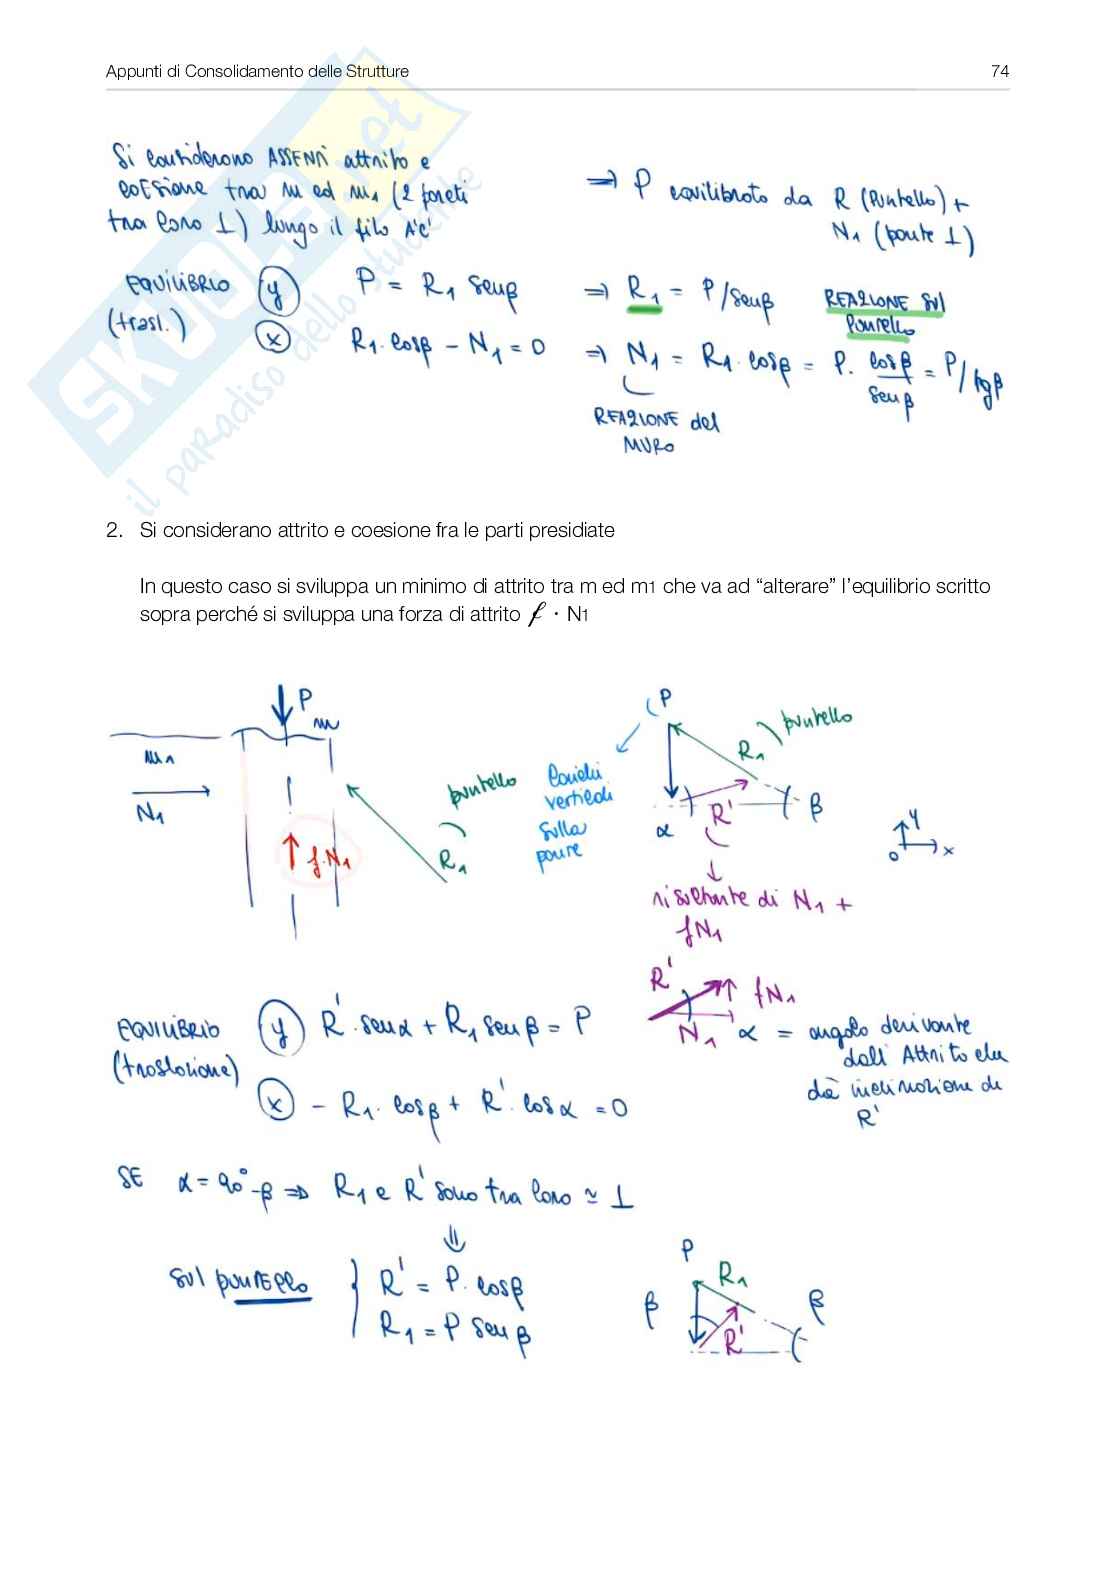 Appunti di Consolidamento delle Strutture 74
Si considerano ASSENTI attrito e
coesione tra m ed m1 (2 pareti
tra loro ⊥) lungo il filo A'C'
⇒ P equilibrato da R (Puntello) +
N1 (parete ⊥)
EQUILIBRIO (y) P = R1 senβ ⇒ R1 = P/senβ REAZIONE sul
Puntello
(trasl.) (x) R1·cosβ - N1 = 0 ⇒ N1 = R1·cosβ = P· cosβ/senβ = P/tgβ
REAZIONE del
MURO
2. Si considerano attrito e coesione fra le parti presidiate
In questo caso si sviluppa un minimo di attrito tra m ed m1 che va ad “alterare” l’equilibrio scritto
sopra perché si sviluppa una forza di attrito f · N1
P
m
m1
N1
f·N1
puntello
R1
Carichi
verticali
sulla
parete
P
R1
puntello
R'
α
β
y
o
x
risultante di N1 +
fN1
R'
fN1
N1
α = angolo derivante
dall' Attrito che
dà inclinazione di
R'
EQUILIBRIO (y) R'·senα + R1 senβ = P
(traslazione)
(x) - R1·cosβ + R'·cosα = 0
SE α = 90°-β ⇒ R1 e R' sono tra loro ≃ ⊥
⇓
sul puntello { R' = P·cosβ
R1 = P senβ
P
R1
β
β
R'
SKUOLA.net
il paradiso dello studente